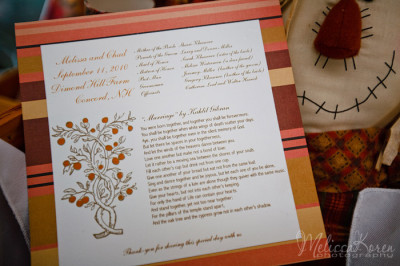 Melissa and Chad
September 11, 2010
Dimond Hill Farm
Concord, NH
Mother of the Bride
Parents of the Groom
Maid of Honor
Matron of Honor
Best Man
Groomsman
Officiant
"Marriage" by Kahlil Gibran
You were born together, and together you shall be forevermore.
You shall be together when white wings of death scatter your days.
Aye, you shall be together even in the silent memory of God.
But let there be spaces in your togetherness,
And let the winds of the heavens dance between you.
Love one another but make not a bond of love:
Let it rather be a moving sea between the shores of your souls.
Fill each other's cup but drink not from one cup.
Give one another of your bread but eat not from the same loaf.
Sing and dance together and be joyous, but let each one of you be alone,
Even as the strings of a lute are alone though they quiver with the same music.
Give your hearts, but not into each other's keeping.
For only the hand of Life can contain your hearts.
And stand together, yet not too near together:
For the pillars of the temple stand apart,
And the oak tree and the cypress grow not in each other's shadow.
Thank you for sharing this special day with us
Melissa Koren
photography